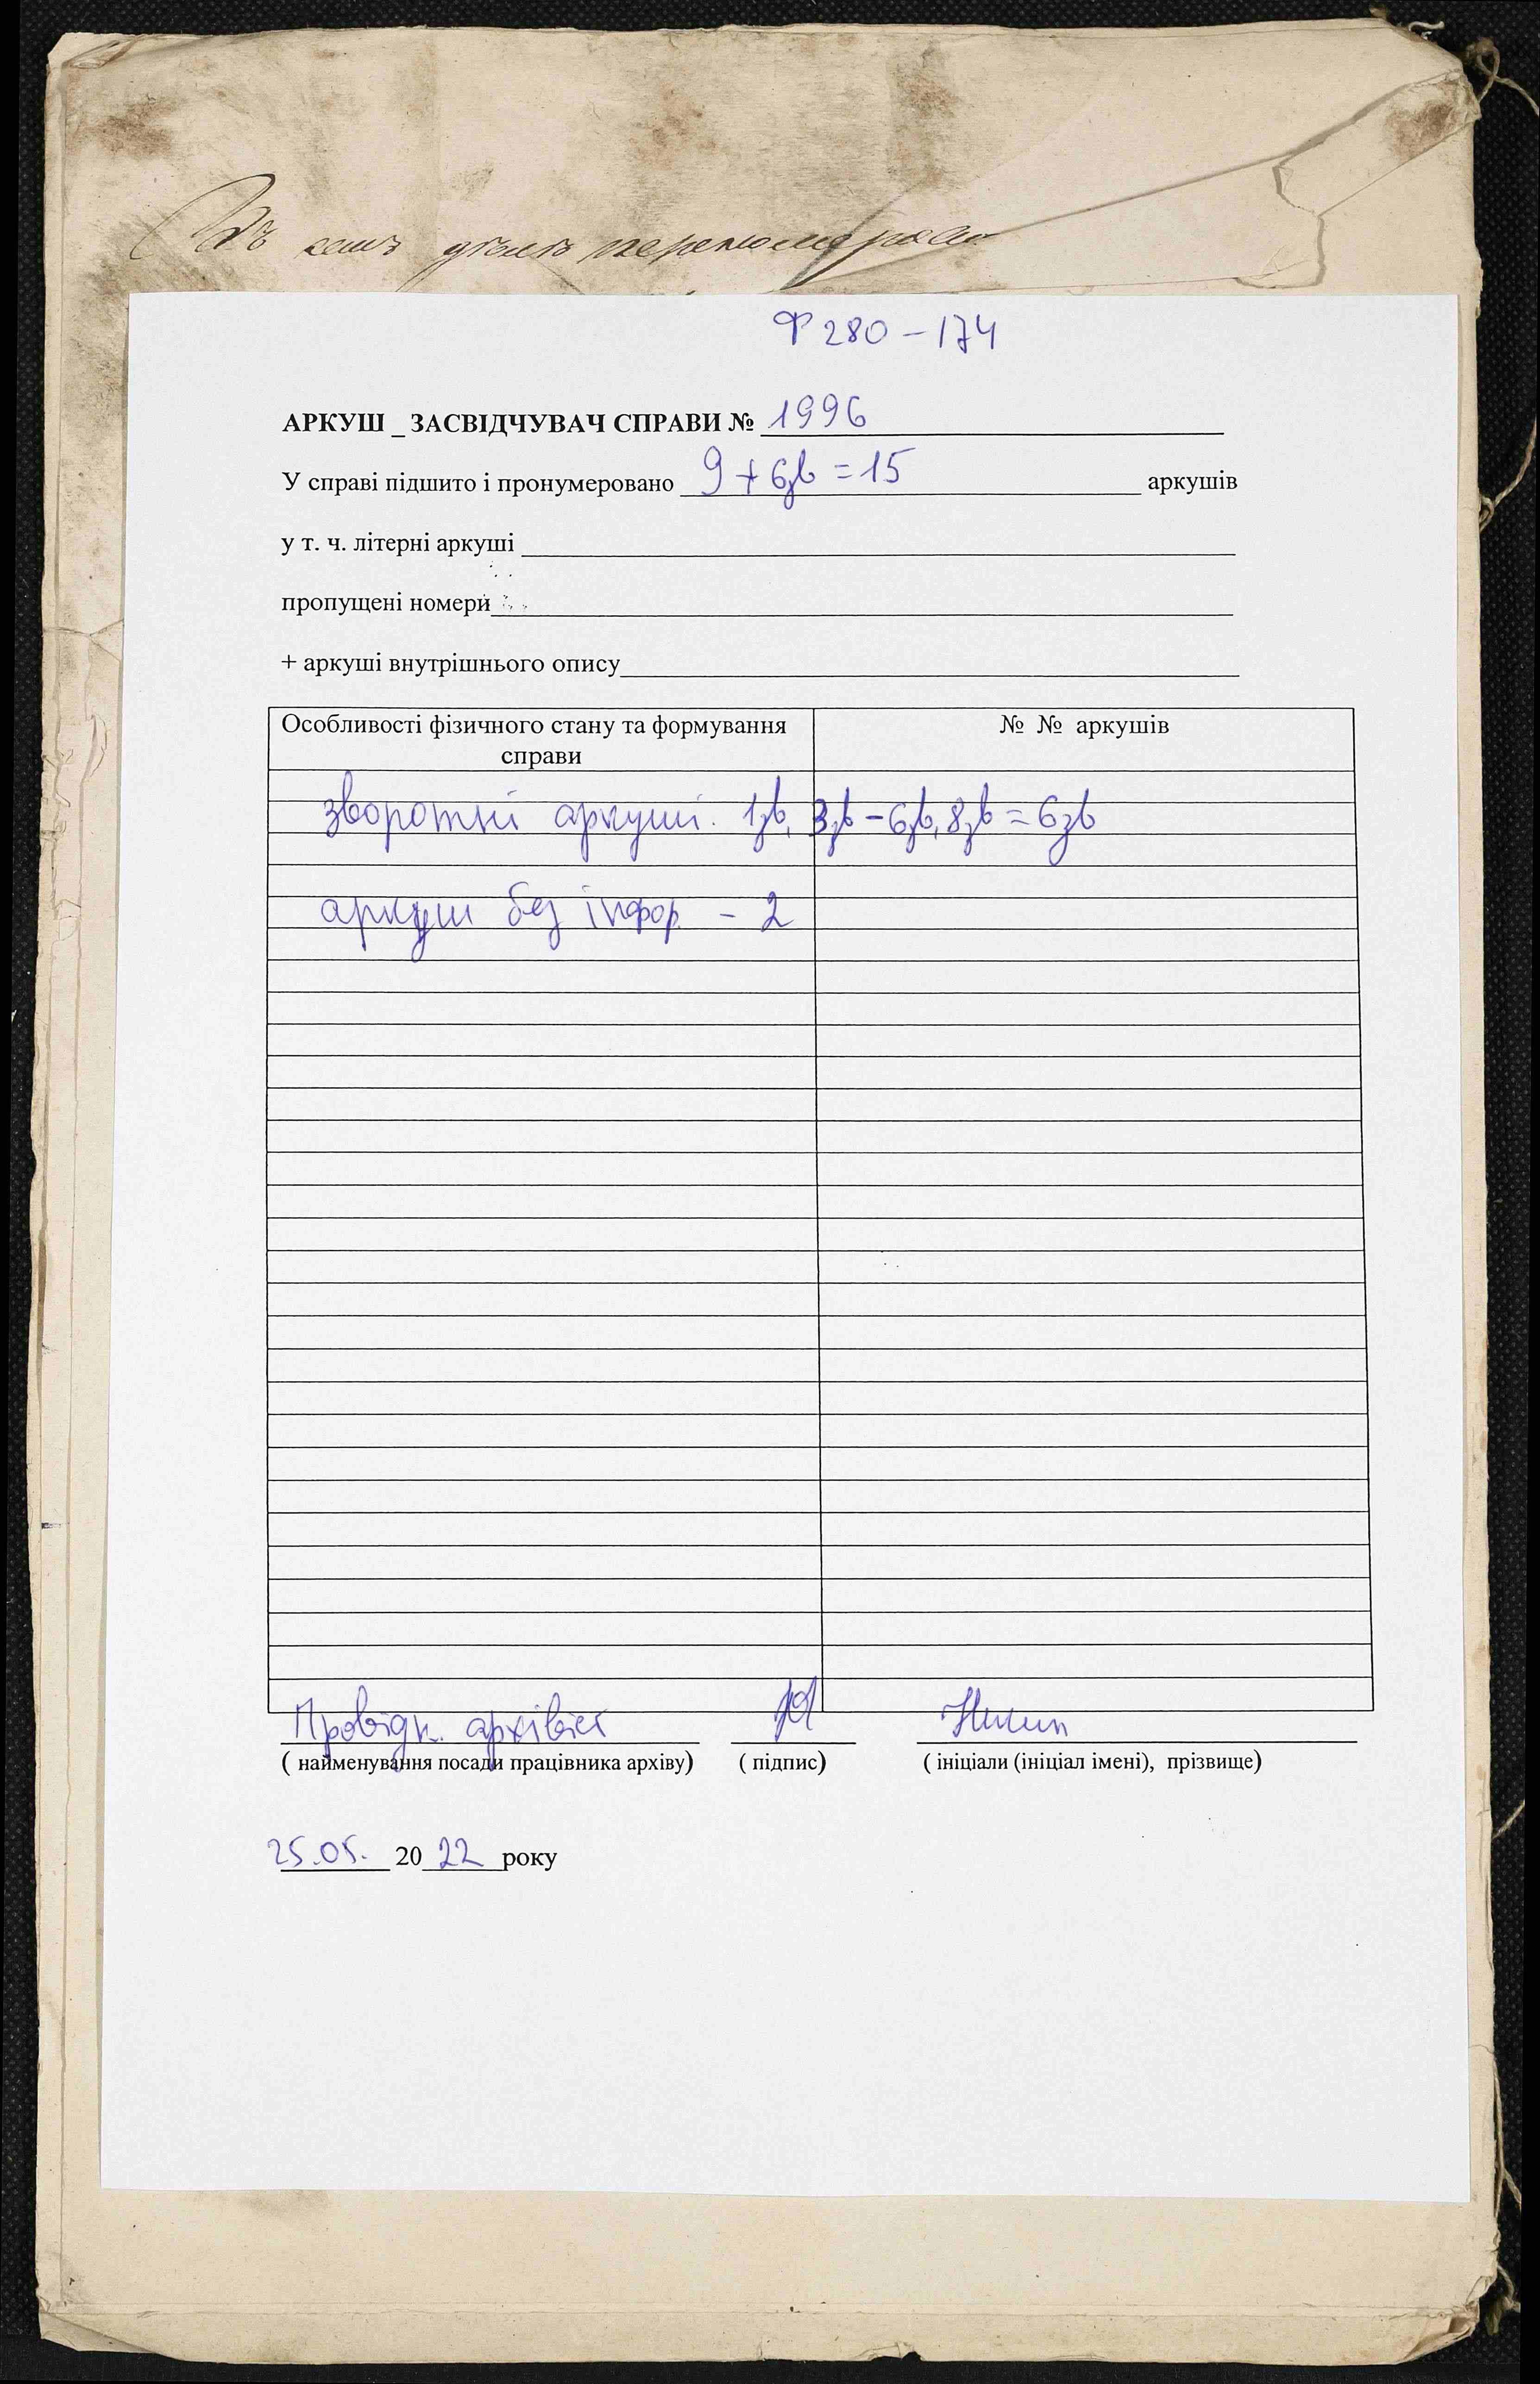 Въ семъ дѣлѣ перенумерован
Ф 280 – 174
АРКУШ _ ЗАСВІДЧУВАЧ СПРАВИ № 1996
У справі підшито і пронумеровано 9 + 6зв = 15 аркушів
у т. ч. літерні аркуші
пропущені номери
+ аркуші внутрішнього опису
Особливості фізичного стану та формування справи
№ № аркушів
зворотні аркуші: 1зв, 3зв – 6зв, 8зв = 6зв
аркуш без інфор. – 2
Провідн. архівіст
( найменування посади працівника архіву) ( підпис) ( ініціали (ініціал імені), прізвище)
25.05. 2022 року